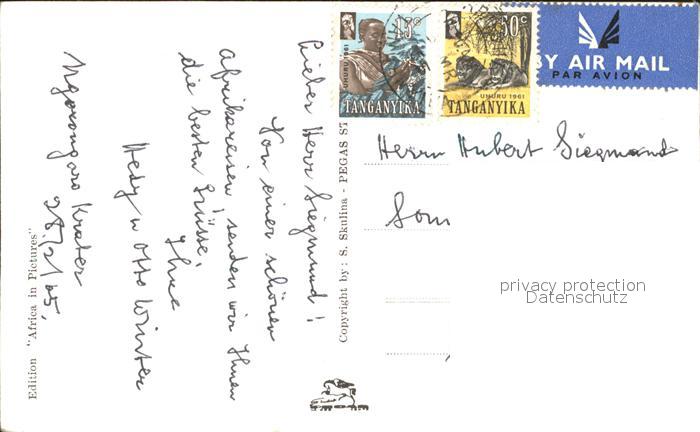 Ngorongoro Krater
28/2/65.
Lieber Herr Siegmund!
Von einer schönen
Afrikareisen senden wir Ihnen
die besten Grüsse,
Ihre
Hedy u Otto Winter
Edition "Africa in Pictures"
Copyright by: S. Skulina - PEGAS ST
15c
UHURU 1961
TANGANYIKA
50c
UHURU 1961
TANGANYIKA
BY AIR MAIL
PAR AVION
Herrn Hubert Siegmund
Som
privacy protection
Datenschutz